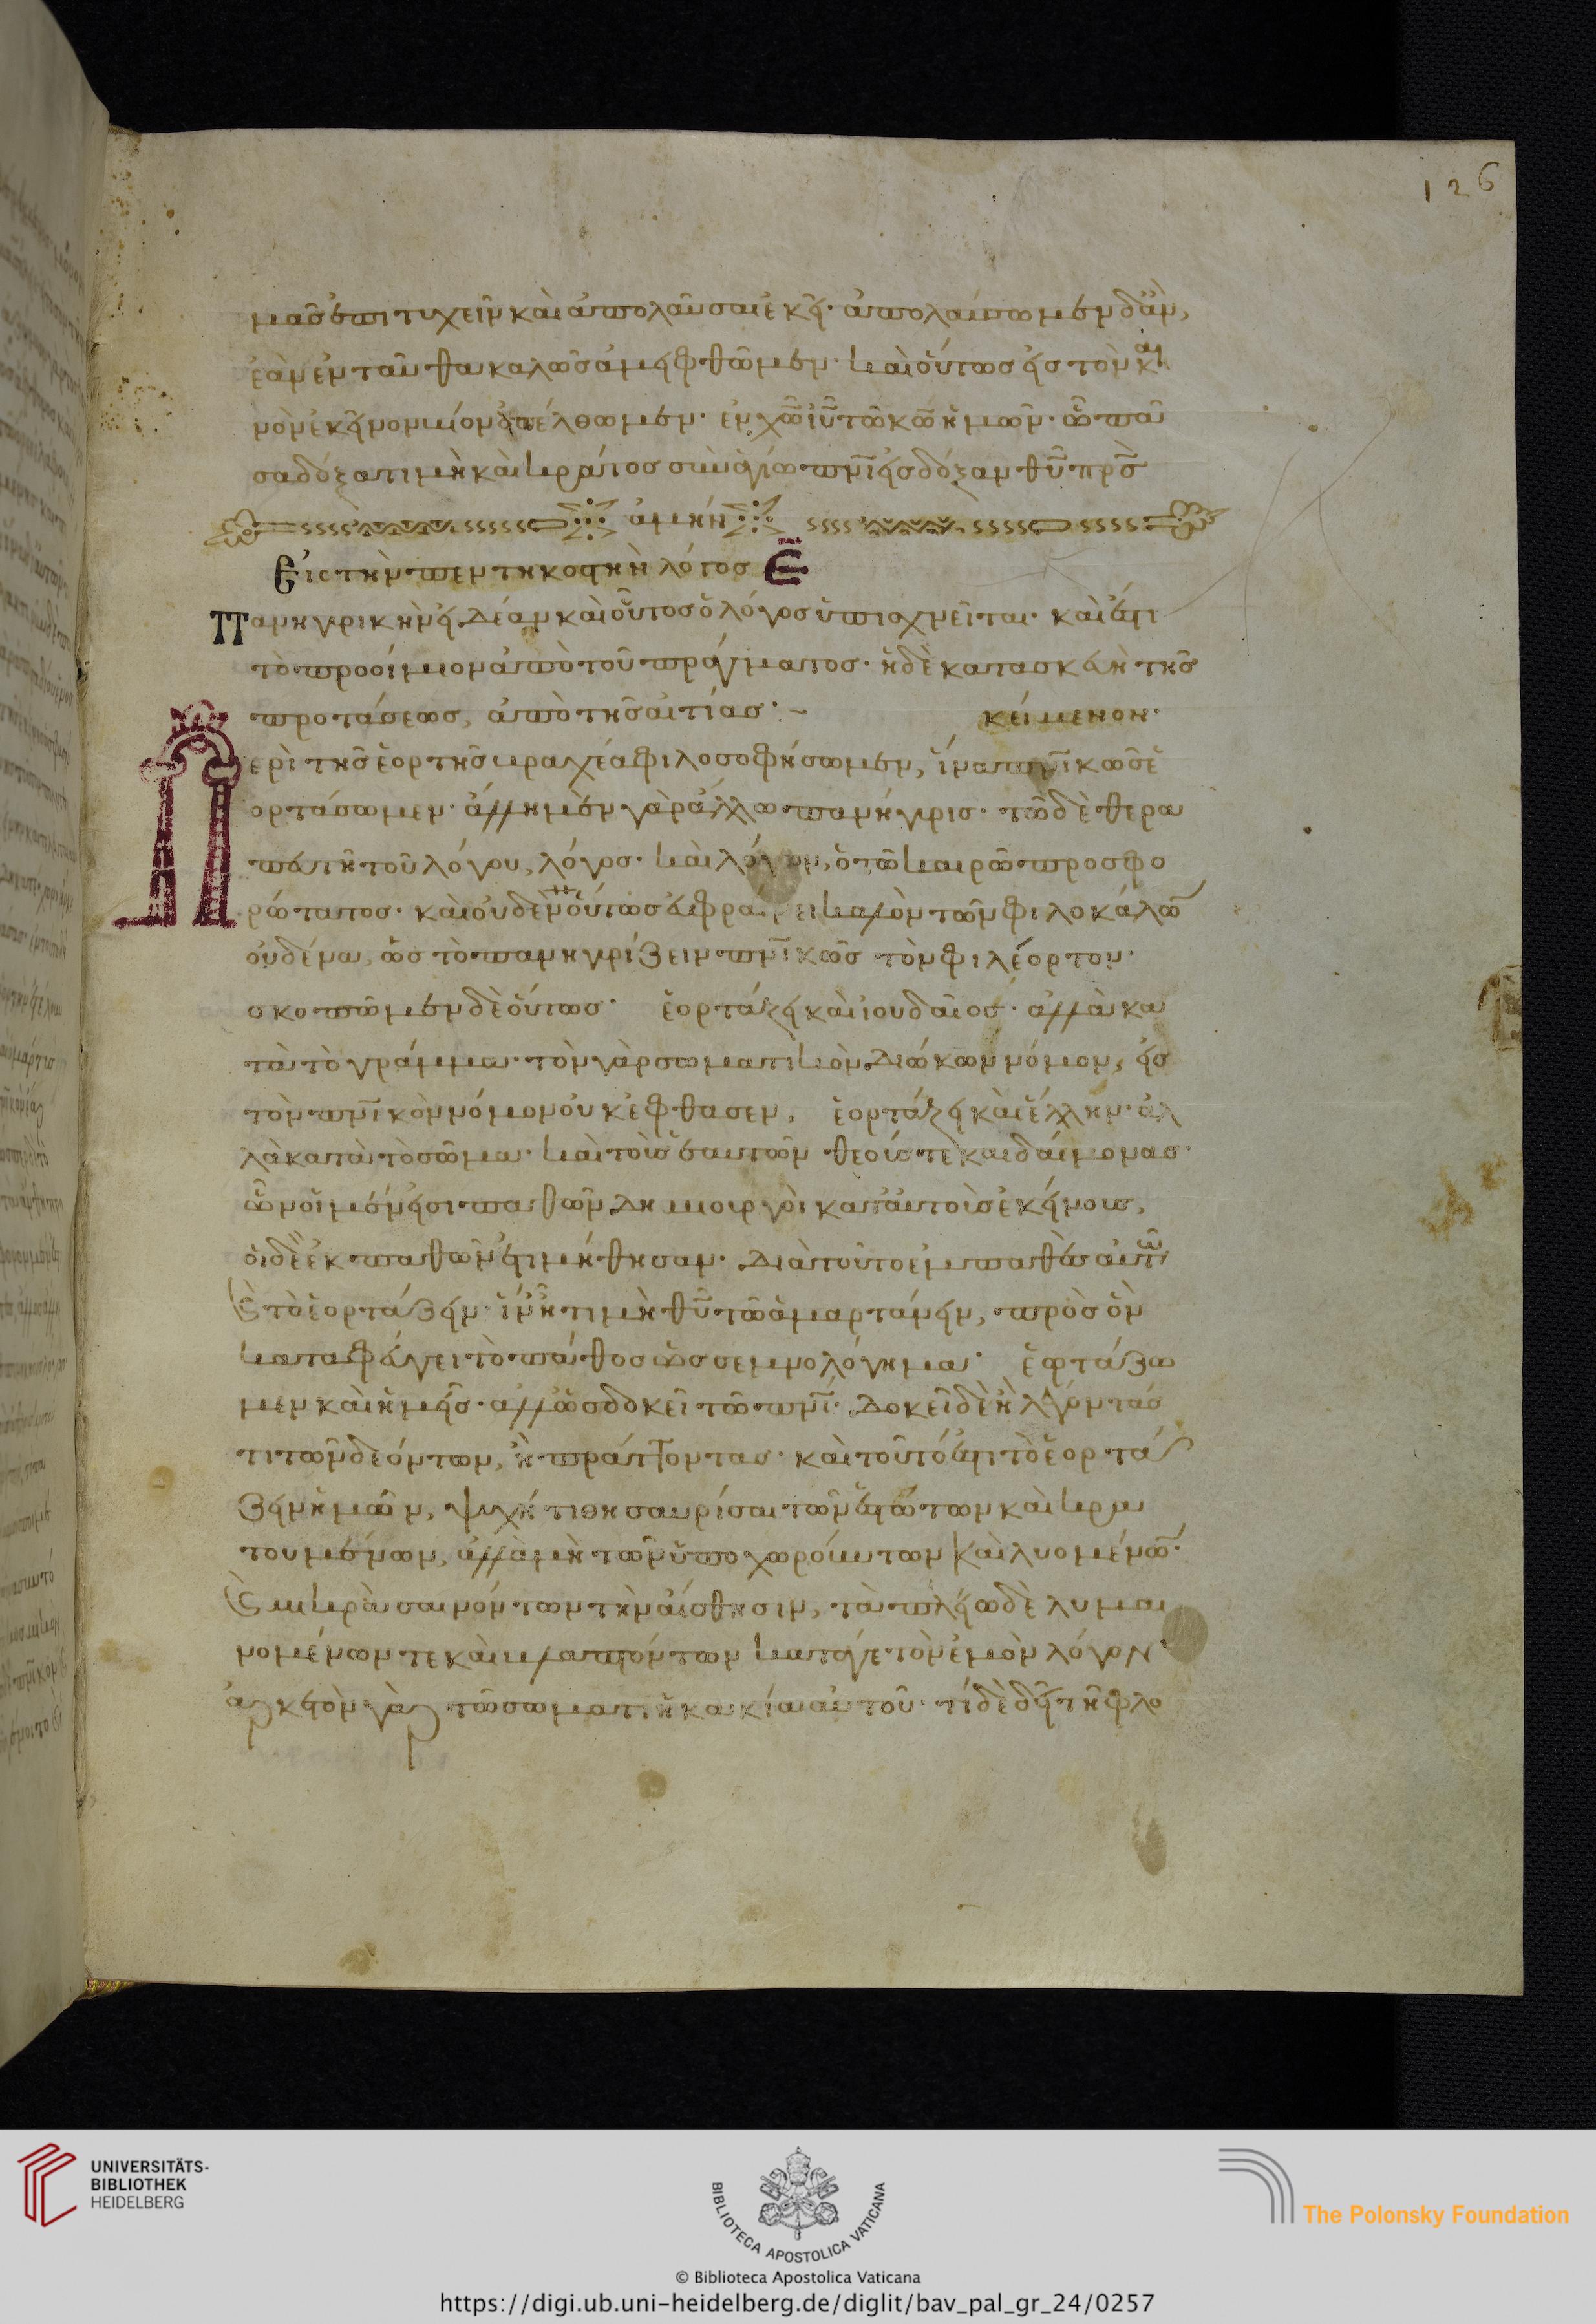 126
μᾶς ἐπιτυχεῖν καὶ ἀπολαῦσαι ἐκεῖ. ἀπολαύσωμεν δ' ἂν,
ἐὰν ἐνταῦθα καλῶς ἀμειφθῶμεν. καὶ οὕτως εἰς τὸν και
νὸν ἐκεῖνον οἶκον ἀπέλθωμεν. ἐν χω̅ ιυ̅ τῶ κω̅ ἡμῶν. ὧ πᾶ
σα δόξα τιμὴ καὶ κράτος σὺν ἁγίω πνι̅ εἰς δόξαν θυ̅ πρς̅
ἀμήν
Εἰς τὴν πεντηκοστὴν λόγος Ε̅
Πανηγρικὴν εἰδέαν καὶ οὗτος ὁ λόγος ὑπισχνεῖται. καὶ ἔστι
τὸ προοίμιον ἀπὸ τοῦ πράγματος. ἡ δὲ κατασκευὴ τῆς
προτάσεως, ἀπὸ τῆς αἰτίας. κείμενον.
Περὶ τῆς ἑορτῆς βραχέα φιλοσοφήσωμεν, ἵνα πνι̅κῶς ἑ
ορτάσωμεν. ἄλλη μὲν γὰρ ἄλλω πανήγρις. τῶ δὲ θερα
πευτῆ τοῦ λόγου, λόγος. καὶ λόγων, ὁ τῶ καιρῶ προσφο
ρώτατος. καὶ οὐδὲν οὕτως εὐφραίνει καλὸν τῶν φιλοκάλω̅
οὐδένα, ὡς τὸ πανηγρίζειν πνι̅κῶς τὸν φιλέορτον.
σκοπῶμεν δὲ οὕτως. ἑορτάζει καὶ ἰουδαῖος. ἀλλὰ κα
τὰ τὸ γράμμα. τὸν γὰρ σωματικὸν διώκων νόμον, εἰς
τὸν πνι̅κὸν νόμον οὐκ ἔφθασεν, ἑορτάζει καὶ ἕλλην. ἀλ
λὰ κατὰ τὸ σῶμα. καὶ τοὺς ἑαυτῶν θεούς τε καὶ δαίμονας.
ὧν οἱ μέν εἰσι παθῶν δημιουργοὶ κατ' αὐτοὺς ἐκείνους,
οἱ δὲ ἐκ παθῶν ἐτιμήθησαν. διὰ τοῦτο ἐμπαθὲς αὐτῶν
καὶ τὸ ἑορτάζειν. ἵν' ἦ τιμὴ θυ̅ τὸ ἁμαρτάνειν, πρὸς ὃν
καταφεύγει τὸ πάθος ὡς σεμνολόγημα. ἑορτάζο
μεν καὶ ἡμεῖς. ἀλλ' ὡς δοκεῖ τῶ πνι̅. δοκεῖ δὲ ἢ λέγοντάς
τι τῶν δεόντων, ἢ πράττοντας. καὶ τοῦτό ἐστι τὸ ἑορτά
ζειν ἡμῶν, ψυχῆ τι θησαυρίσαι τῶν ἑστώτων καὶ κρα
τουμένων, ἀλλὰ μὴ τῶν ὑποχωρούντων καὶ λυομένω̅.
καὶ μικρὰ σαινόντων τὴν αἴσθησιν, τὰ πλείω δὲ λυμαι
νομένων τε καὶ βλαπτόντων κατά γε τὸν ἐμὸν λόγον.
ἀρκετὸν γὰρ τῶ σώματι ἡ κακία αὐτοῦ. τί δὲ δεῖ τῆ φλο
UNIVERSITÄTS-
BIBLIOTHEK
HEIDELBERG
BIBLIOTECA APOSTOLICA VATICANA
The Polonsky Foundation
© Biblioteca Apostolica Vaticana
https://digi.ub.uni-heidelberg.de/diglit/bav_pal_gr_24/0257